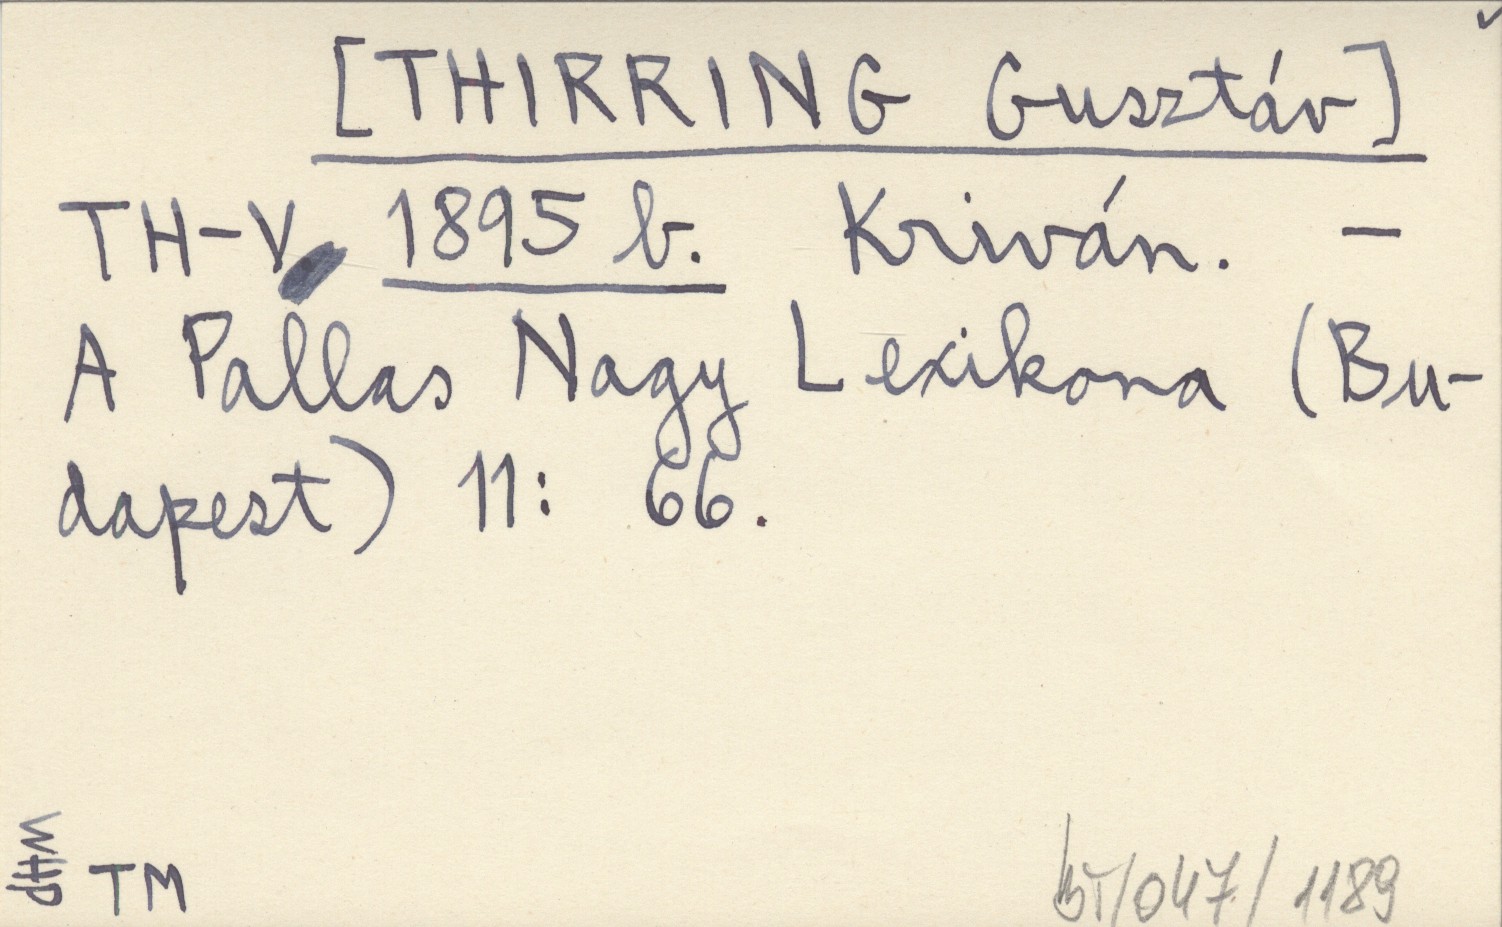 [THIRRING Gusztáv]
TH-V. 1895 b. Kriván. –
A Pallas Nagy Lexikona (Bu-
dapest) 11: 66.
TM
/047/1189